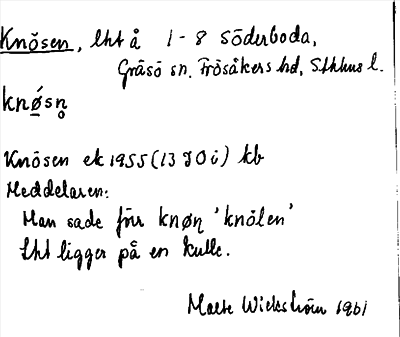 Knösen, lht å 1-8 Söderboda,
Gräsö sn. Frösåkers hd, Sthlms l.
knø̱sn̥
Knösen ek 1955 (13 J 0 i) kb
Meddelaren:
Man sade förr knøn 'knölen'
Lht ligger på en kulle.
Malte Wickström 1961